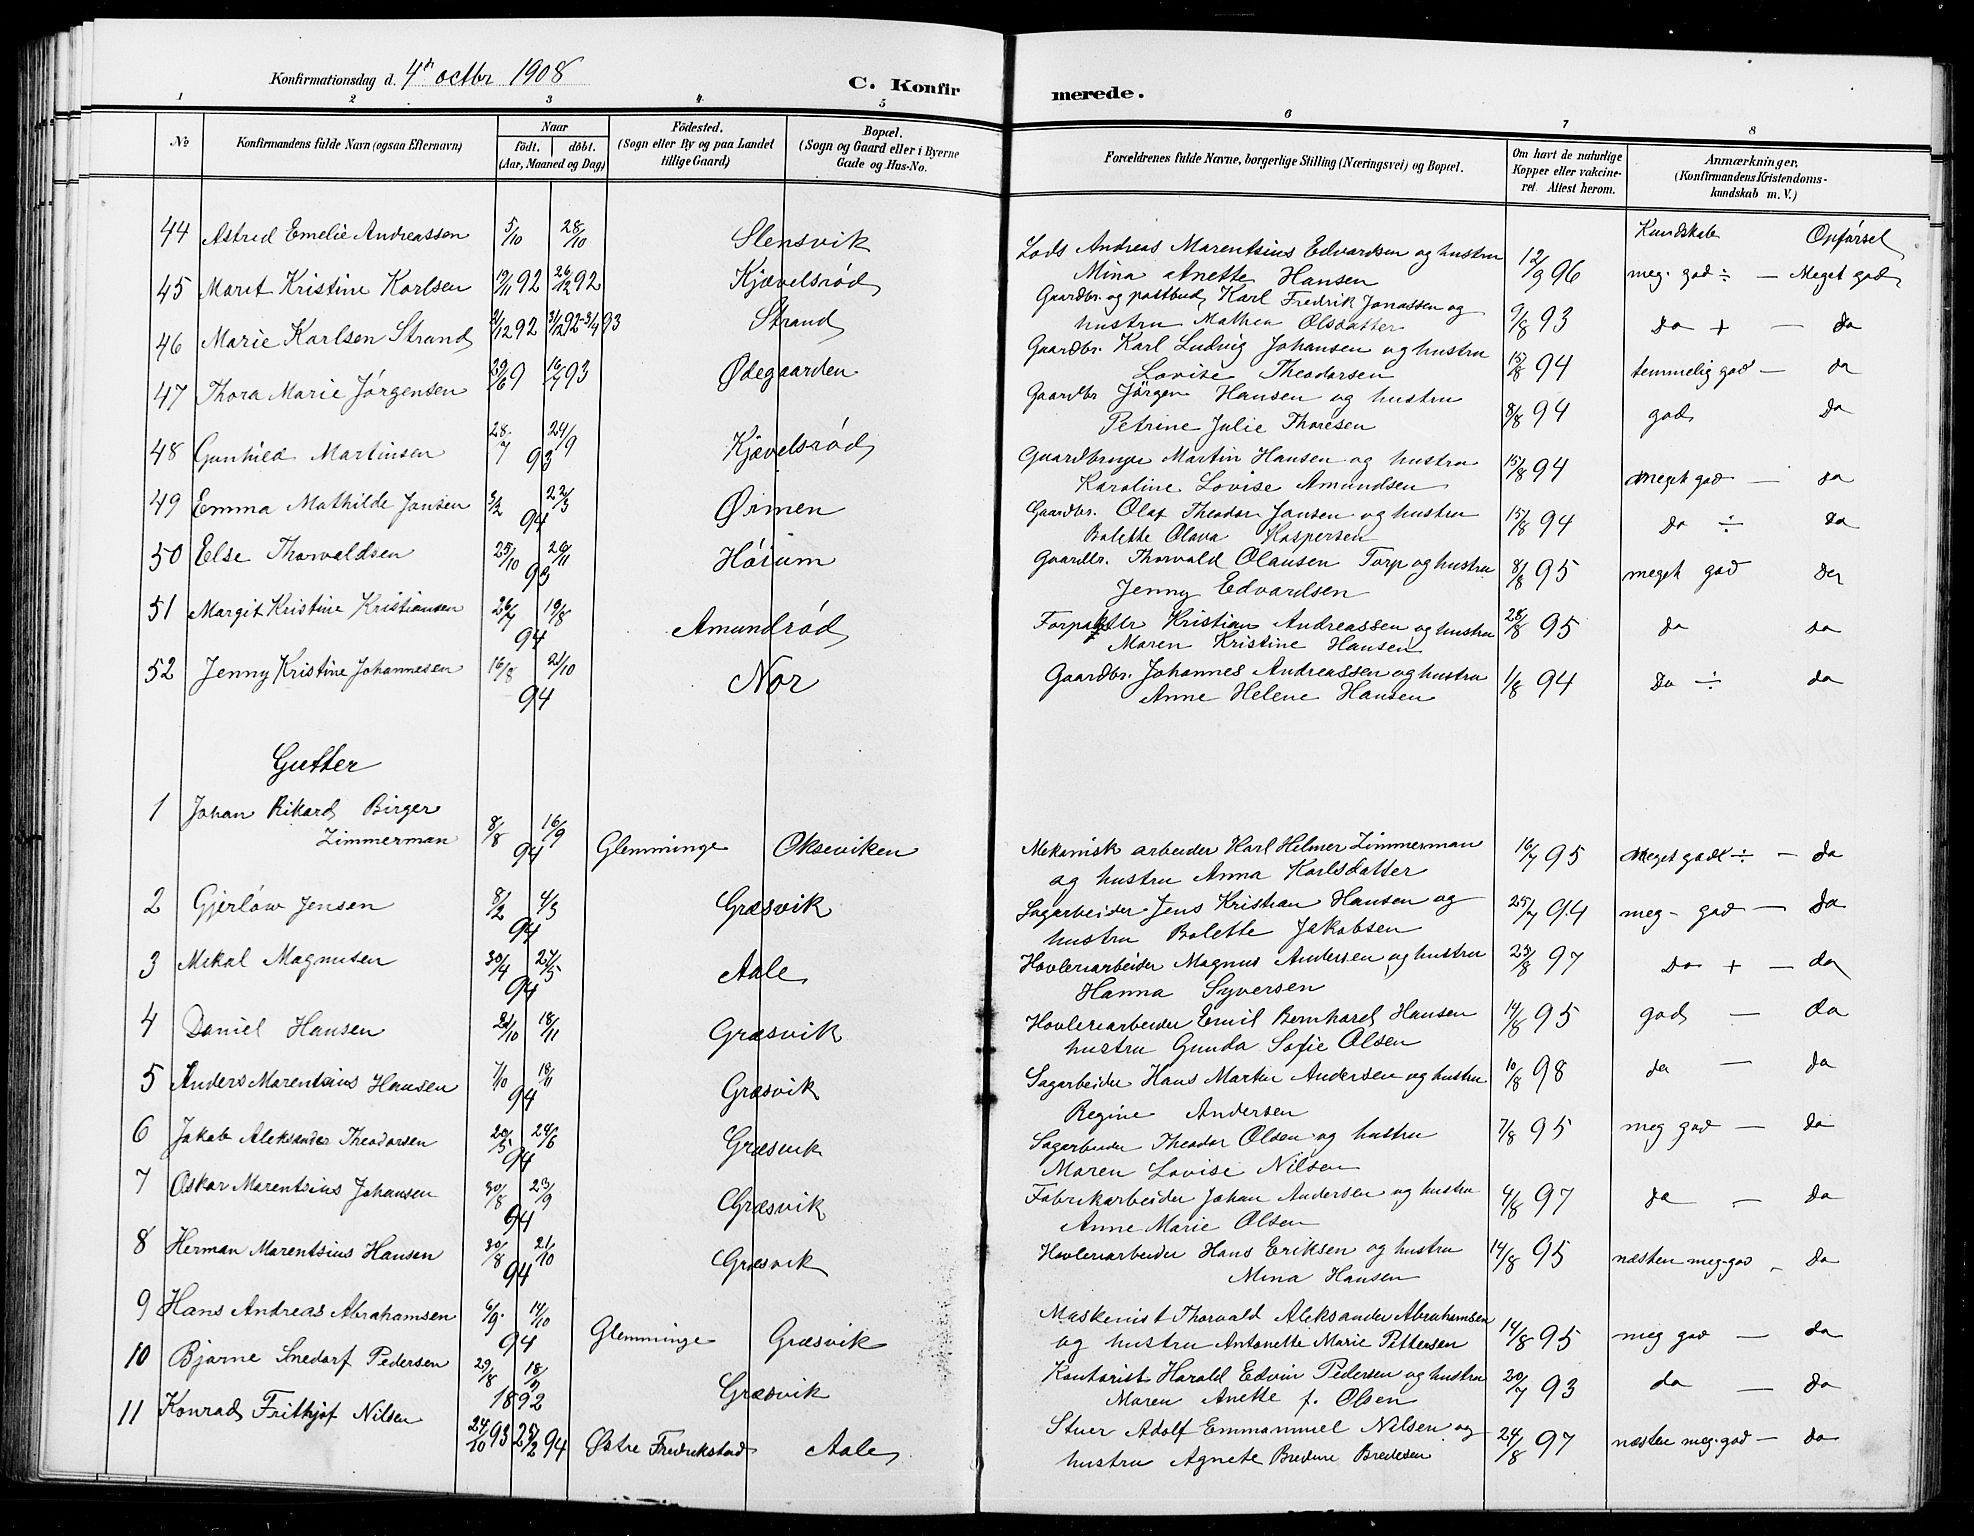 Konfirmationsdag d. 4de octbr 1908
C. Konfirmerede.
1 2 3 4 5 6 7 8
No Konfirmandens fulde Navn (ogsaa Efternavn) Naar født. døbt. (Aar, Maaned og Dag) Fødested. (Sogn eller By og paa Landet tillige Gaard) Bopæl. (Sogn og Gaard eller i Byerne Gade og Hus-No. Forældrenes fulde Navne, borgerlige Stilling (Næringsvei) og Bopæl. Om havt de naturlige Kopper eller vakcineret. Attest herom. Anmærkninger. (Konfirmandens Kristendomskundskab m. V.)
Kundskab Opførsel
44 Astrid Emelie Andreassen 5/10 28/10 Slensvik Lods Andreas Marentsius Edvardsen og hustru
Mina Anette Hansen 12/9 96 meg. god ÷ — Meget god
45 Marit Kristine Karlsen 19/11 92 26/12 92 Kjævelsrød Gaardbr. og postbud, Karl Fredrik Jonassen og
hustru Mathea Olsdatter 9/8 93 Do + — Do
46 Marie Karlsen Strand 2/12 92 31/12 92-3/4 93 Strand Gaardbr. Karl Ludvig Johansen og hustru
Lovise Theodorsen 15/8 94 temmelig god — da
47 Thora Marie Jørgensen 29/6 9 16/7 93 Ødegaarden Gaardbr Jørgen Hansen og hustru
Petrine Julie Thoresen 8/8 94 god Do
48 Gunhild Martinsen 28/7 24/9 93 Kjævelsrød Gaardbruger Martin Hansen og hustru
Karoline Lovise Amundsen 15/8 94 Meget god — da
49 Emma Mathilde Jansen 3/2 22/3 94 Ørmen Gaardbr. Olaf Theodor Jansen og hustru
Bolette Olava Kaspersen 15/8 94 Do ÷ Do
50 Else Thorvaldsen 25/10 26/11 93 Hørum Gaardbr. Thorvald Olausen Torp og hustru
Jenny Edvardsen 8/8 95 meget god Do
51 Margit Kristine Kristiansen 26/7 19/8 94 Amundrød Forpakter Kristian Andreassen og hustru
Maren Kristine Hansen 28/8 95 da da
52 Jenny Kristine Johannesen 16/8 21/10 94 Nor Gaardbr. Johannes Andreassen og hustru
Anne Helene Hansen 1/8 94 Do ÷ da
Gutter
1 Johan Rikard Birger
Zimmerman 8/8 16/9 94 Glemminge Okseviken Mekanisk arbeider Karl Helmer Zimmerman
og hustru Anna Karlsdatter 16/7 95 Meget godt ÷ — Do
2 Gjerløw Jensen 8/2 4/3 94 Græsvik Sagarbeider Jens Kristian Hansen og
hustru Bolette Jakobsen 25/7 94 meg- god — Do
3 Mikal Magnusen 30/4 27/5 94 Aale Hovleriarbeider Magnus Andersen og hustru
Hanna Syversen 23/8 97 Do + — do
4 Daniel Hansen 21/10 18/11 Græsvik Hovleriarbeider Emil Bernhard Hansen
hustru Gunda Sofie Olsen 14/8 95 god — Do
5 Anders Marentsius Hansen 7/10 18/11 94 Græsvik Sagarbeider Hans Martin Andersen og hustru
Regine Andersen 10/8 98 da — Do
6 Jakob Aleksander Theodorsen 20/5 24/6 94 Græsvik Sagarbeider Theodor Olsen og hustru
Maren Lovise Nilsen 7/8 95 meg god — Do
7 Oskar Marentsius Johansen 30/8 23/9 94 Græsvik Fabrikarbeider Johan Andersen og hustru
Anne Marie Olsen 4/8 97 da — Do
8 Herman Marentsius Hansen 30/8 21/10 94 Græsvik Hovleriarbeider Hans Eriksen og hustru
Mina Hansen 14/8 95 næsten meg-god - Do
9 Hans Andreas Abrahamsen 6/9 14/10 94 Glemminge Græsvik Maskenist Thorvald Aleksander Abrahamsen
og hustru Antonette Marie Pettersen 14/8 95 meg god — da
10 Bjarne Snedorf Pedersen 29/8 18/9 1892 Græsvik Kontorist Harald Edvin Pedersen og hustru
Maren Anette f. Olsen 20/7 93 da — Do
11 Konrad Frithjof Nilsen 24/10 93 25/2 94 Østre Fredrikstad Aale Stuer Adolf Emmanuel Nilsen og
hustru Agnete Bredine Bredesen 24/8 97 næsten meg-god — Do